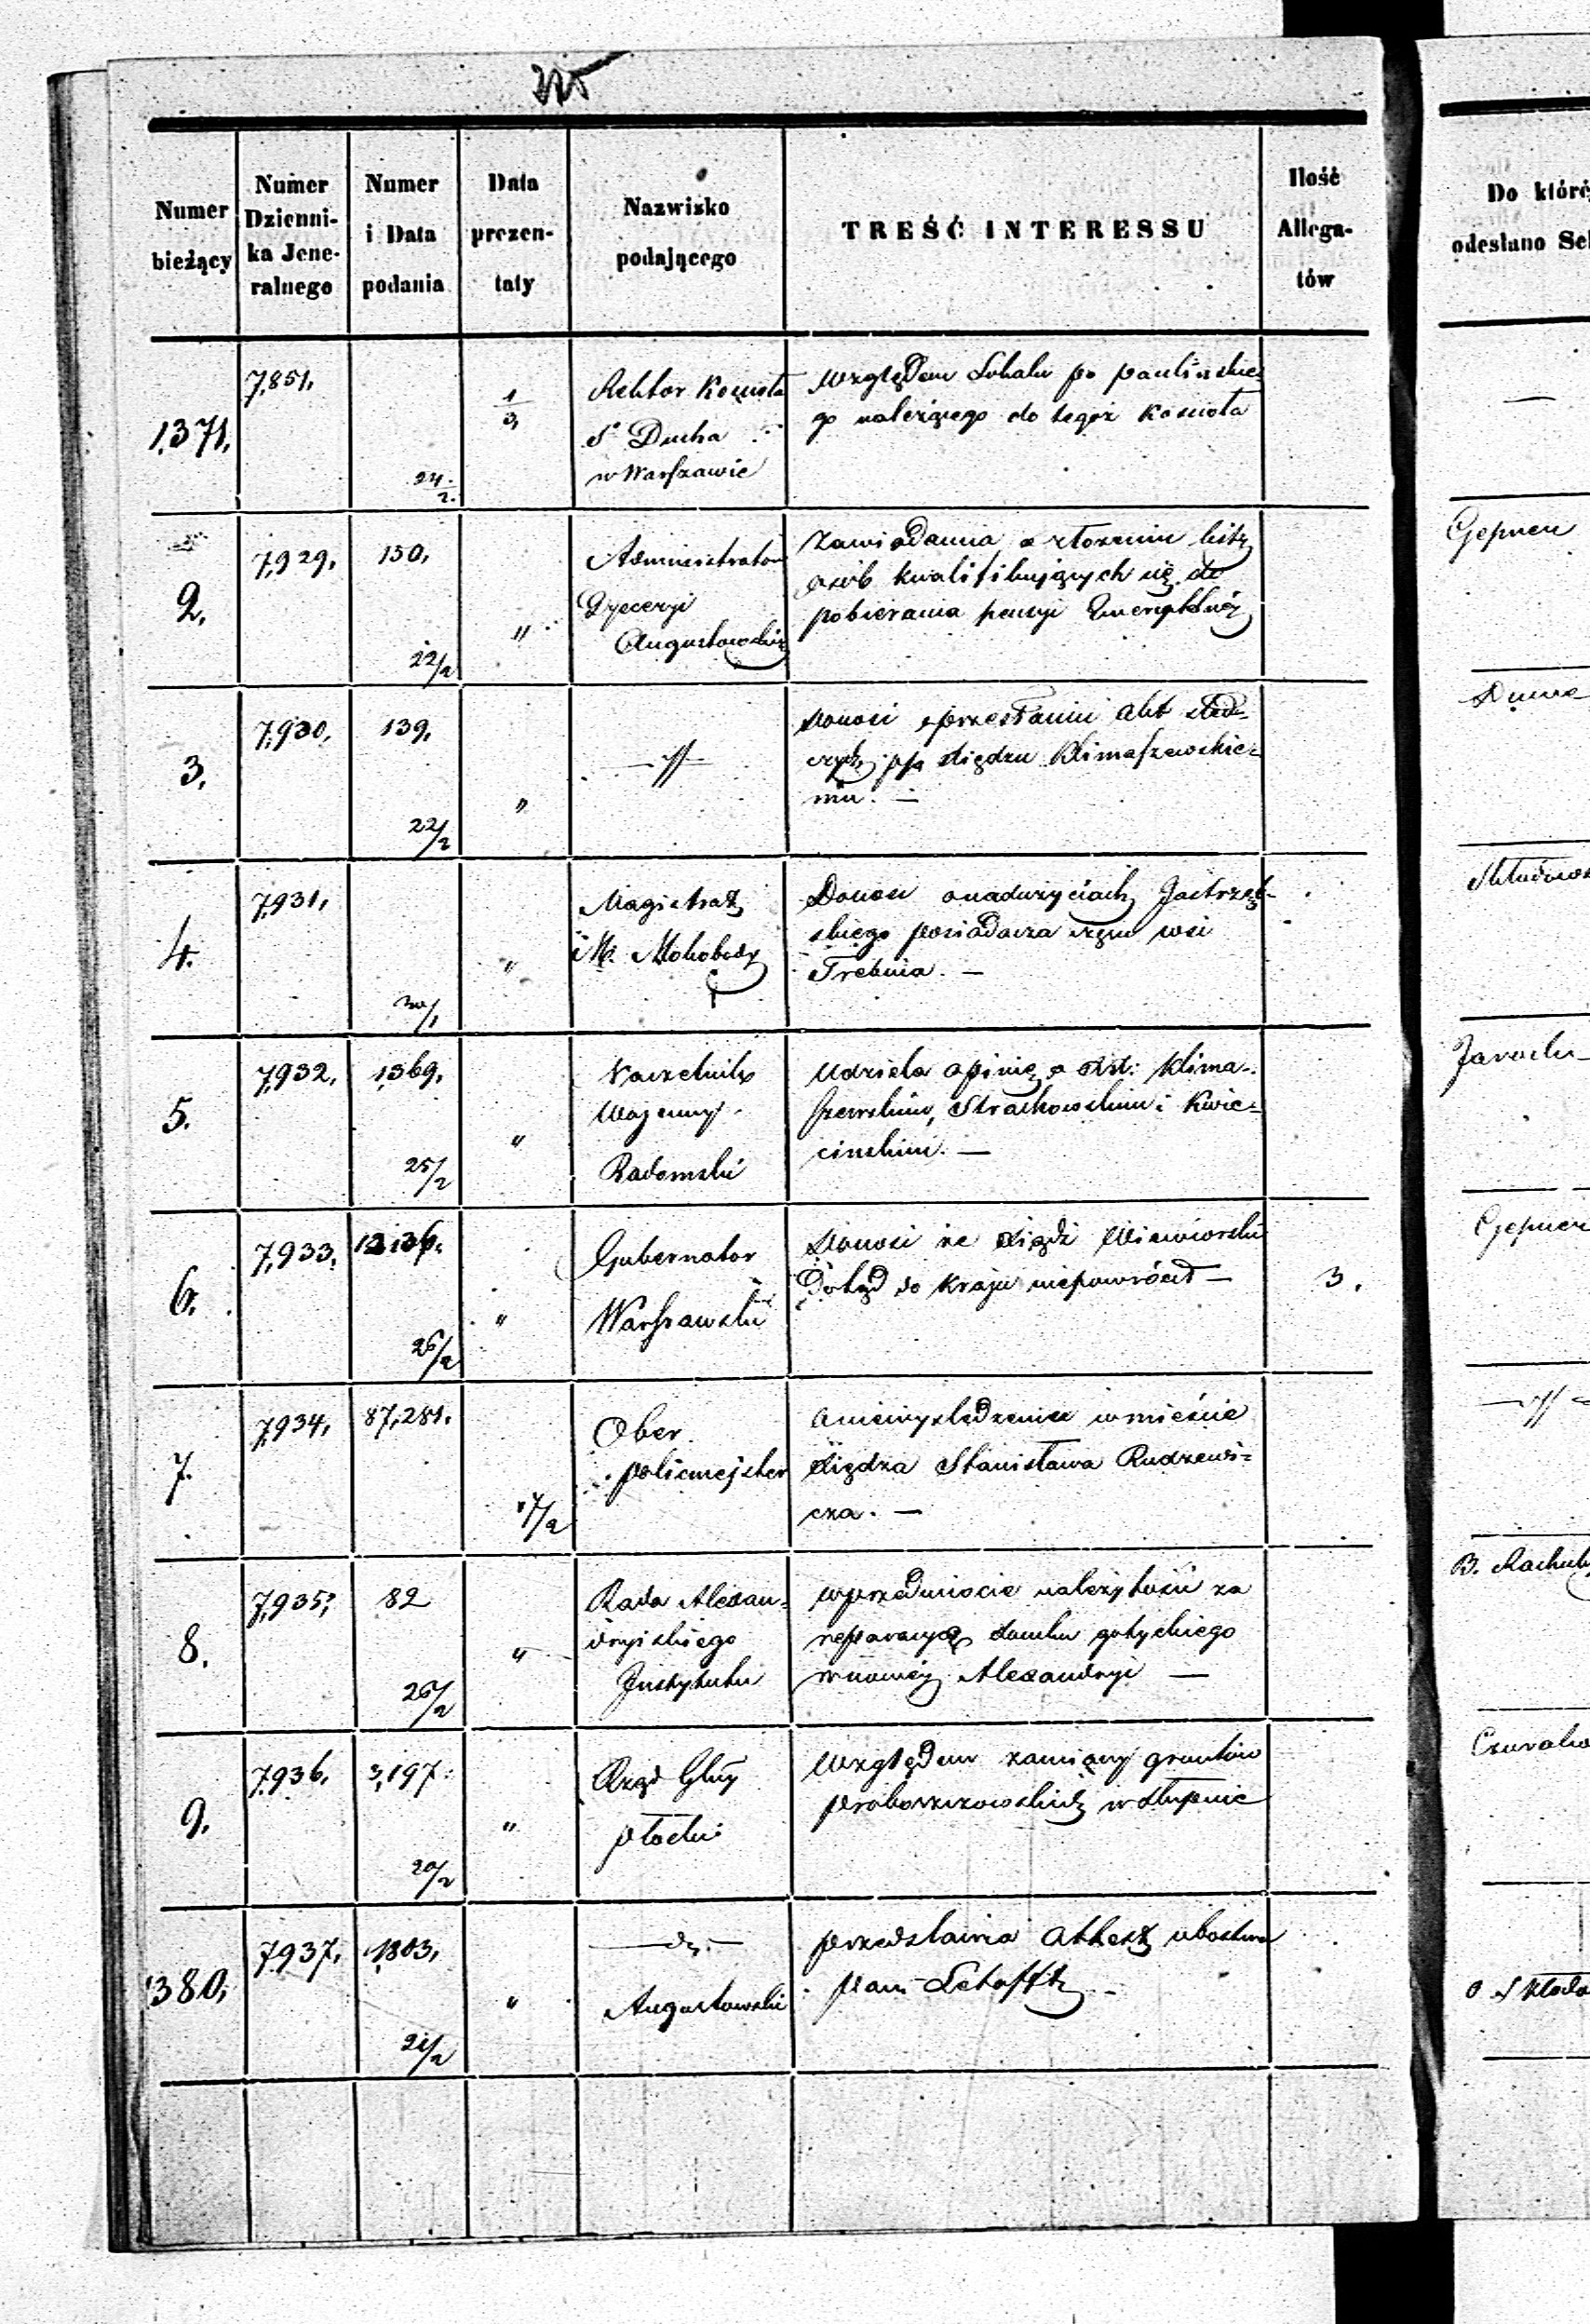 225
Numer bieżący
Numer Dzienni-ka Jene-ralnego
Numer i Data podania
Data prezen-taty
Nazwisko podającego
TREŚĆ INTERESSU
Ilość Allega-tów
Do któréj
odesłano Sek
1,371. 7,851. 24/2. 1/3
Rektor Kościoła
Sº Ducha
w Warszawie
Względem Lokalu po paulińskie-
go należącego do tegoż Kościoła
2. 7,929. 150. 22/2 "
Administrator
Dyecezyi
Augustowskiej
Zawiadamia o złożeniu listy
osób kwalifikujących się do
pobierania pensyi Emerytalnéj
Gepnen
3. 7,930. 139. 22/2 "
—//—
Donosi o przesłaniu Akt śled-
czych p/k Xiędzu Klimaszewskie-
mu. —
4. 7,931. 30/1 "
Magistrat
M. Mokobody
Donosi o nadużyciach Jastrzęb-
skiego posiadacza wsi
Trebnia. —
5. 7,932. 1,369. 25/2 "
Naczelnik
Wojenny
Radomski
Udziela opinię o : Klima-
szewskim, Strachowskim i Kwie-
cinskim. —
6. 7,933. 26/2 "
Gubernator
Warszawski
Donosi że Xiądz Wiewiorski
Dotąd do kraju niepowrócił — 3.
7. 7,934. 87,281. 17/2
Ober
policmejster
o niewyśledzeniu w mieście
Xiędza Stanisława Rudzewi-
cza. —
—//—
8. 7,935. 82 26/2 "
Rada Alexan-
dryiskiego
Instytutu
w przedmiocie należytości za
reparacyą domku gotyckiego
w nowéj Alexandryi —
B.
9. 7,936. 3,197. 20/2 "
Rząd Gluy
płocki
Względem zamiany gruntów
proboszczowskich w Słupnie
1380. 7,937. 1,803. 21/2 "
—dº—
Augustowski
przedstawia Attest ubostwa
pani Letofft —